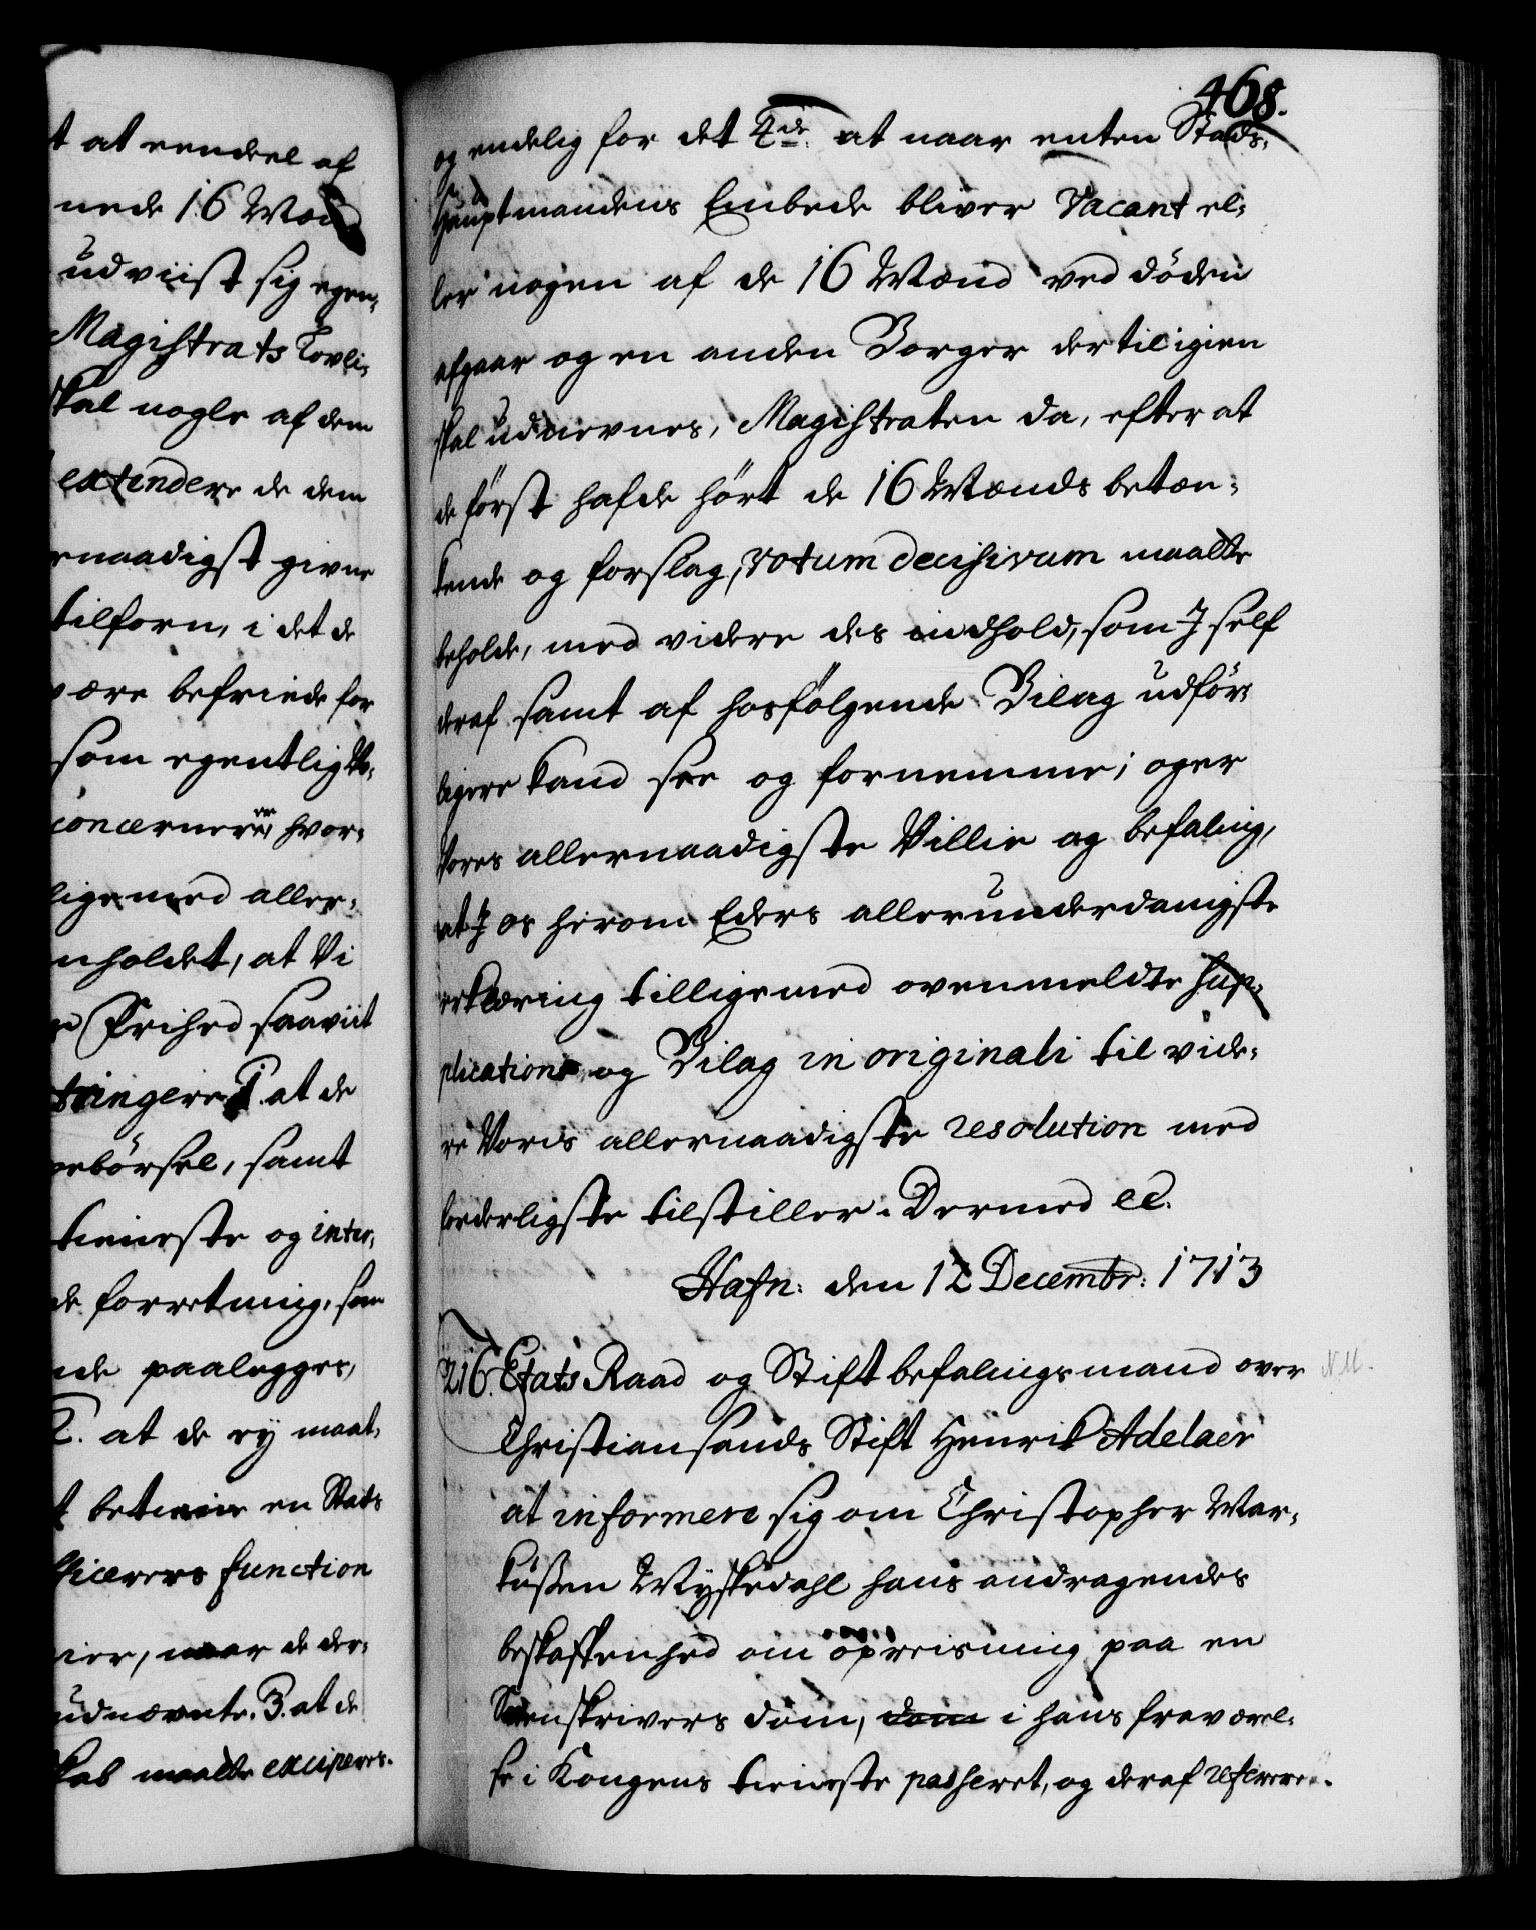 t at eendeel af
nede 16 Mænd
udviist sig egen¬
Magistrats Lovli¬
skal nogle af dem
extendere de dem
rnaadigst givne
tilforn, i det de
være befriede for
som egentlig
concernere, hvor¬
lige med aller¬
nholdet, at Vi
Frihed saaviit
stringere 1. at de
børsel, samt
tieniste og inter¬
de forretning, som
nde paalegges,
2. at de ey maat¬
t betiene en Stads
ficerers function
ier, naar de der¬
udnævnte. 3. at de
skab maatte exciperes.
468.
og endelig for det 4de at naar enten Stads¬
Hauptmandens Embede bliver vacant el¬
ler nogen af de 16 Mænd ved döden
afgaar og en anden Borger dertil igien
skal udnevnes, Magistraten da, efter at
de först hafde hört de 16 Mænds betæn¬
kende og forslag, votum decisivum maatte
beholde, med videre des indhold, som I self
deraf samt af hosfölgende Bilag udför¬
ligere kand see og fornemme; og er
Vores allernaadigste Villie og befaling,
at I os herom Eders allerunderdanigste
erklæring tilligemed ovenmeldte sup¬
plication og Bilag in originali til vide¬
re Voris allernaadigste resolution med
forderligste tilstiller. Dermed etc.
Hafn: den 12 Decembr: 1713
216. Etats Raad og Stiftbefalingsmand over N.M.
Christiansands Stift Henrik Adelaer
at informere sig om Christopher Mar¬
kußen Myskedahl hans andragendes
beskaffenhed om opreisning paa en
Sorenskrivers dom, dom i hans fraværel¬
se i Kongens tieniste passeret, og deraf referere.